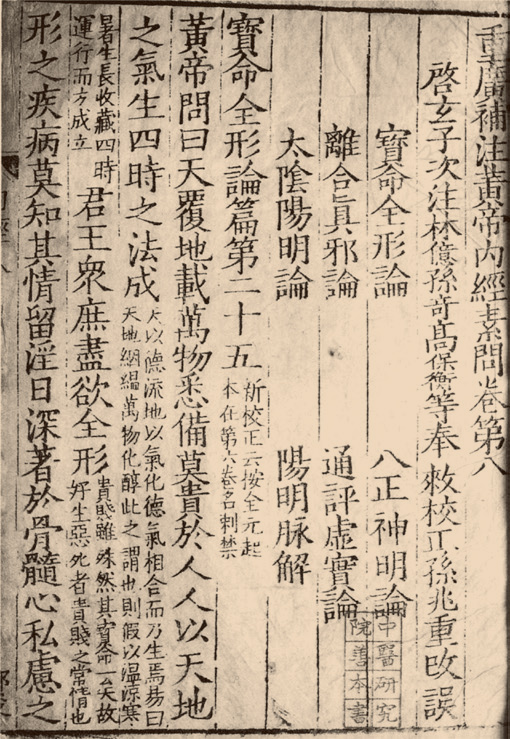 重廣補注黃帝內經素問卷第八
啓玄子次注林億孫竒髙保衡等奉敕校正孫兆重改誤
寶命全形論 八正神明論
離合真邪論 通評虛實論
太陰陽明論 陽明脉解
寶命全形論篇第二十五 新校正云按全元起本在第六卷名刺禁
黃帝問曰天覆地載萬物悉備莫貴於人人以天地
之氣生四時之法成 天以德流地以氣化德氣相合而乃生焉易曰天地絪緼萬物化醇此之謂也則假以温凉寒
暑生長收藏四時運行而方成立 君王衆庶盡欲全形 貴賤雖殊然其寳命一矣故好生惡死者貴賤之常情也
形之疾病莫知其情留淫日深著於骨髓心私慮之
中醫研究
院善本書